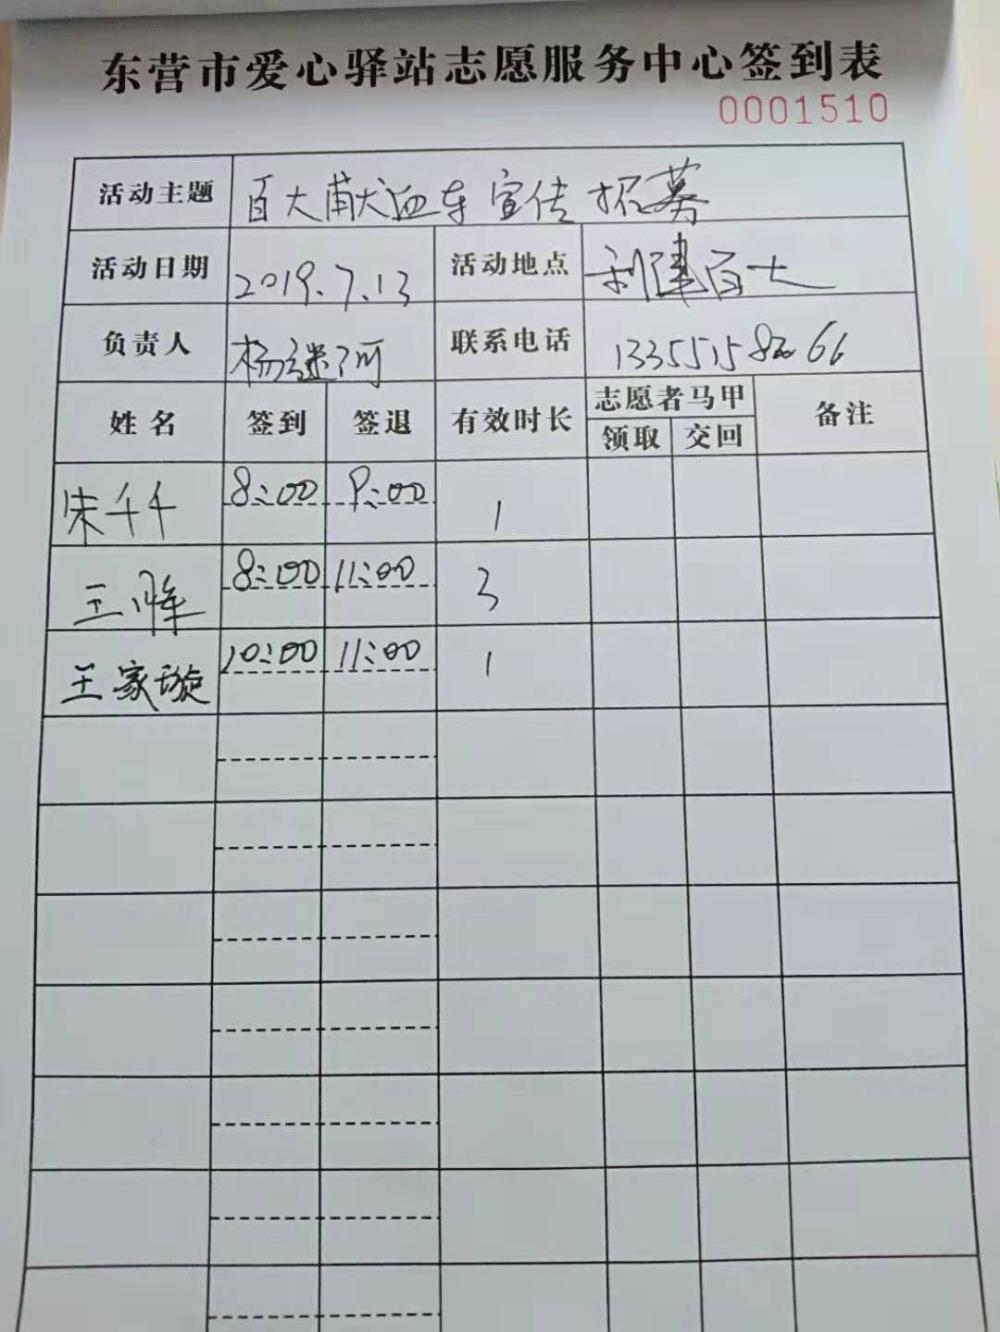 东营市爱心驿站志愿服务中心签到表
0001510
活动主题 百大献血车宣传招募
活动日期 2019.7.13 活动地点 利津百大
负责人 杨继河 联系电话
姓名 签到 签退 有效时长 志愿者马甲 备注
领取 交回
朱千千 8:00 9:00 1
王 8:00 11:00 3
王家璇 10:00 11:00 1